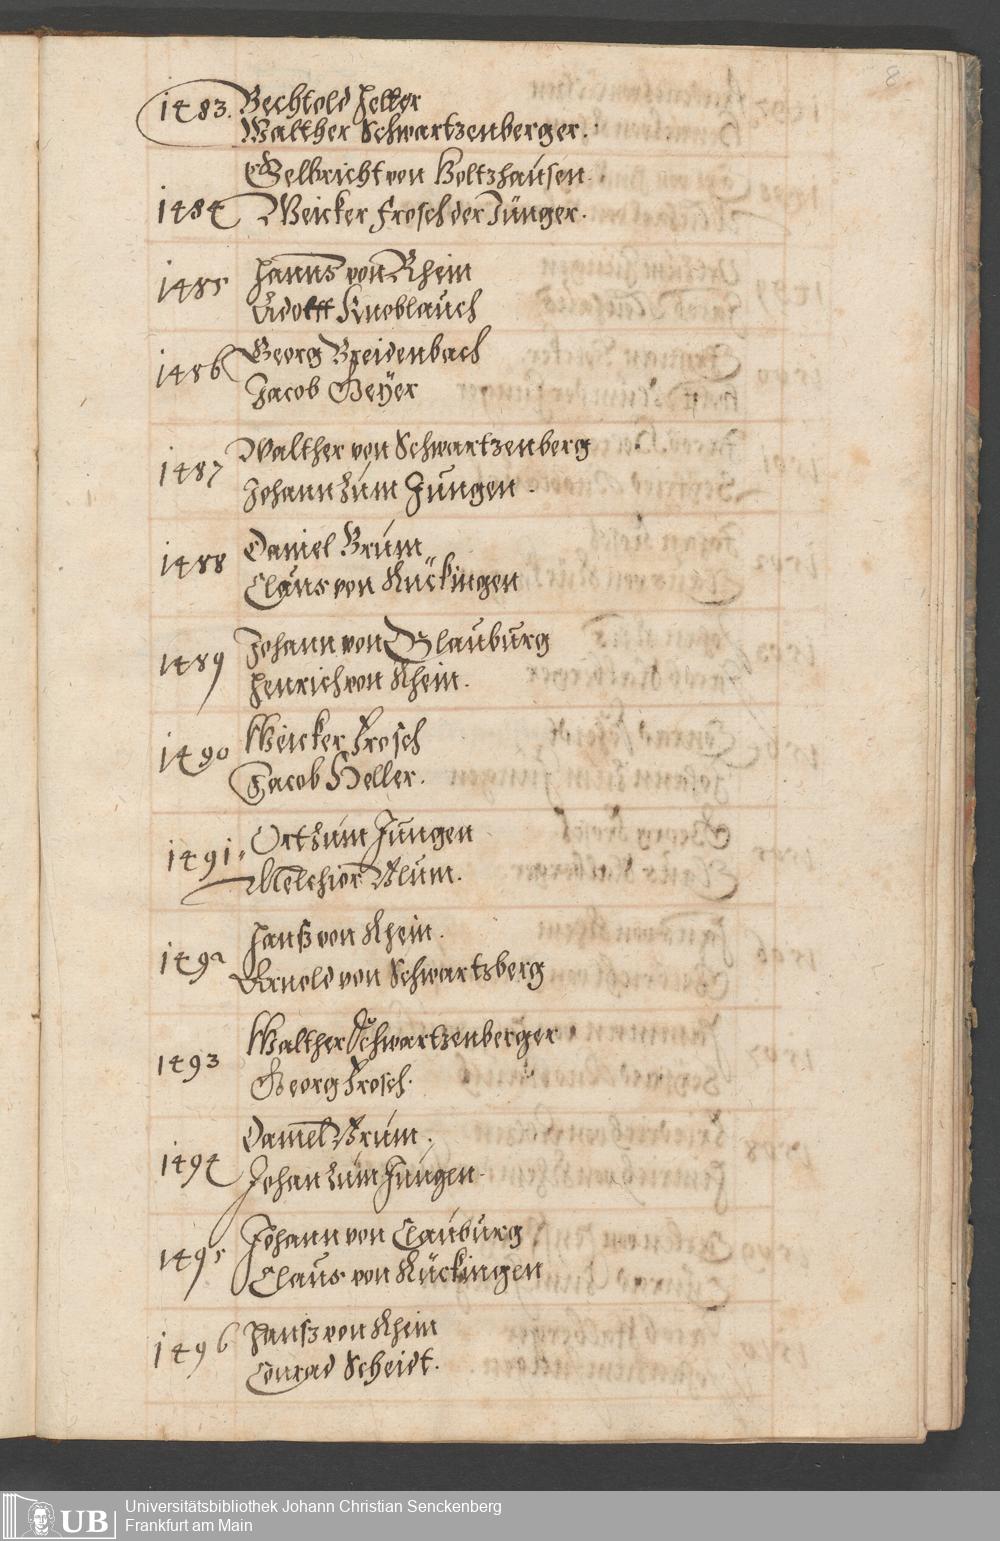 8
1483. Bechtold Heller
Walther Schwartzenberger.
Gelbricht von Holtzhausen.
1484 Weicker Frosch der Jünger.
1485 Hanns von Rhein
Adolff Knoblauch
1486 Georg Breidenbach
Jacob Geÿer
1487 Walther von Schwartzenberg
Johann zum Jungen.
1488 Daniel Brum
Claus von Rückingen
1489 Johann von Glauburg
Henrich von Rhein.
1490 Weicker Frosch
Jacob Heller.
1491. Ort zum Jungen
Melchior Blum.
1492 Hanß von Rhein.
Arnold von Schwartzberg
1493 Walther Schwartzenberger
Georg Frosch.
1494 Daniel Brum.
Johan zum Jungen.
1495 Johann von Glauburg
Claus von Rückingen
1496 Hanß von Rhein
Conrad Scheidt.
UB Universitätsbibliothek Johann Christian Senckenberg
Frankfurt am Main